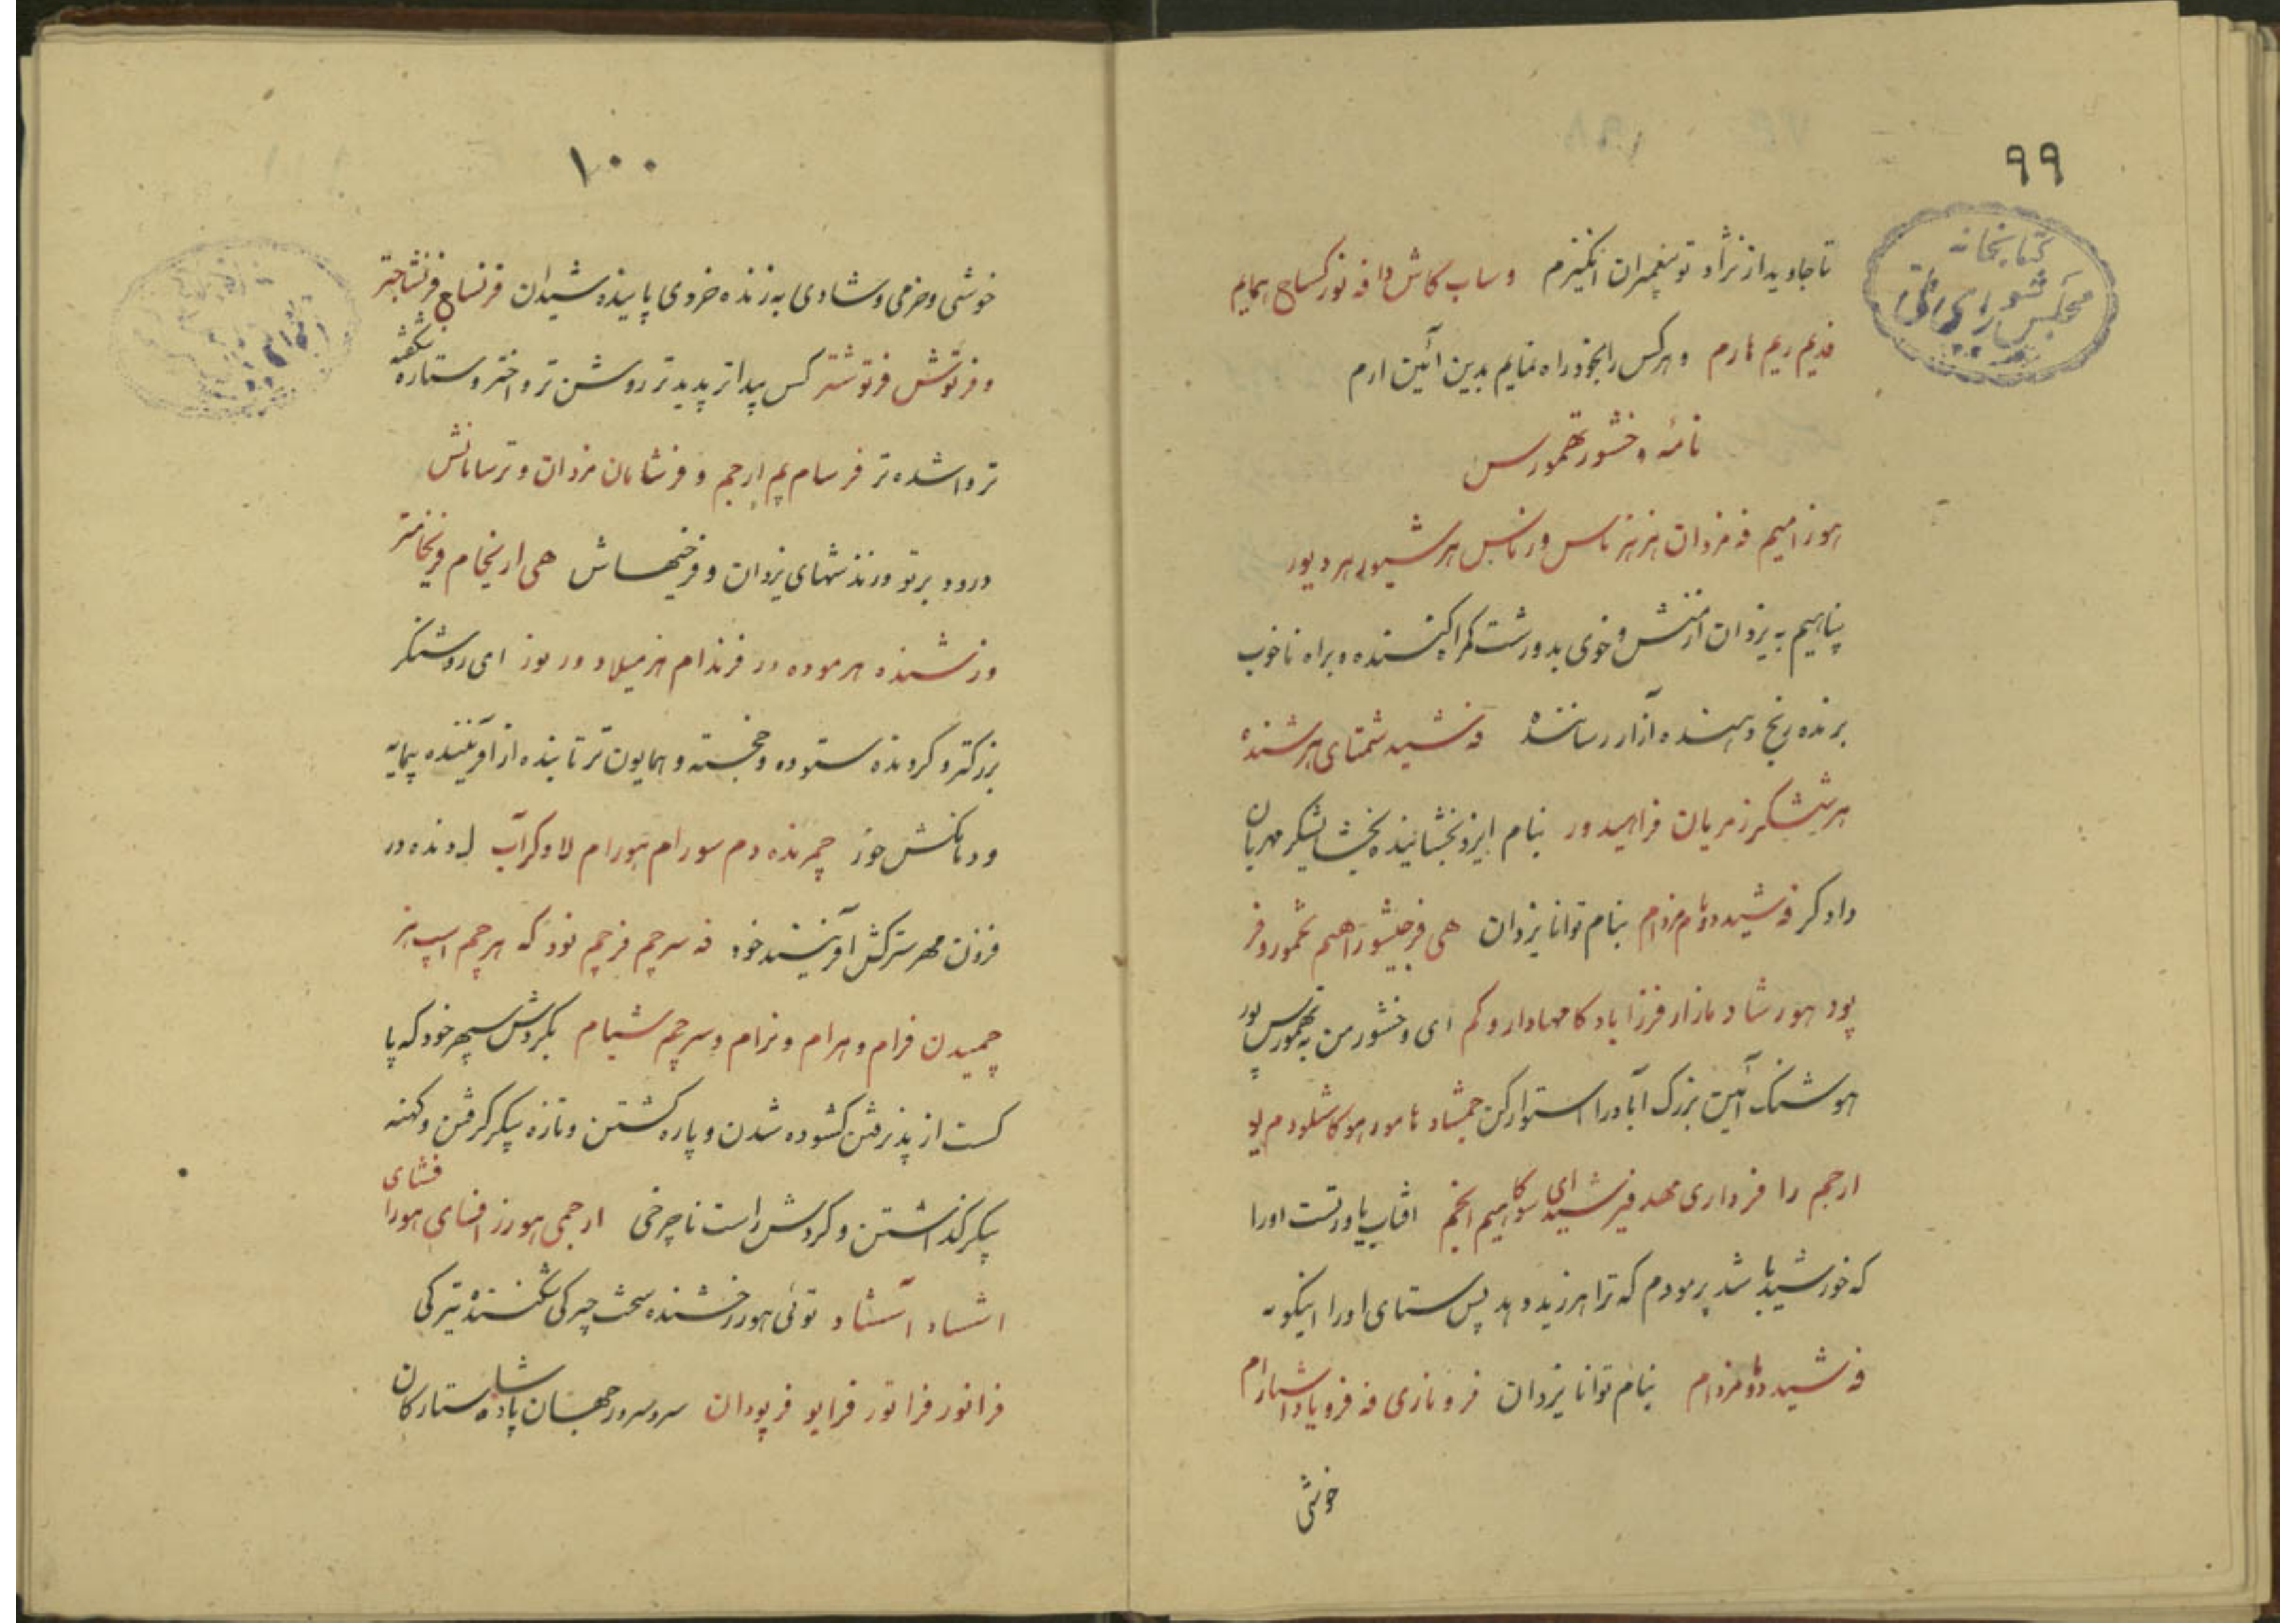 ۹۹
کتابخانه
مجلس شورای ملی
تا جاوید از نژاد تو پیغمبران انگیزم وساب کاش دافه نور کساج همایم
فدیم ریم هارم و هرکس را بخود راه نمایم بدین آئین ارم
نامه وخشور تهمورس
هوزامیم فه مزدان هزهز ماس وزماس هرشیور هردیور
پناهیم به یزدان از منش و خوی بد و زشت گمراه کننده و براه ناخوب
برنده رنج دهنده آزار رساننده فه شید شمتای هرشنده
هرششگر زمریان فراهیدور بنام ایزد بخشاینده بخشایشگر مهربان
دادگر فه شید دوهام مزدام بنام توانا یزدان هی فرجیشور اهیم تخمورو فر
پود هورشاد مازار فرزاباد کامهادار وکم ای وخشور من تهمورس پور
هوشنگ آئین بزرگ آباد را استوار کن جمشاد هامور هو کاشلودم یو
ارجم را فرداری مهد فیرشیدای سوکاهیم انجم افتاب یاور تست اورا
که خورشید باشد پرمودم که ترا هرزید دهد پس ستای اورا اینگونه
فه شید دوهام مزدام بنام توانا یزدان فروناری فه فرویاد
خوشی
۱۰۰
خوشی و خرمی و شادی به زنده خردی پاینده شیدان فرنساج فرنشاجتر
و فرتوش فرتوشتر کس پیداتر پدیدتر روشن تر و اختر و ستاره شگفته
تر واشده تر فرسام پم ارجم و فرشامان مزدان و ترسامانش
درود بر تو ورندشهای یزدان و فرخیهاش هی ارنجام فرنجامتر
وزشنده هرموده در فرندام هزمیلاد ور بوز ای روشنگر
بزرکتر و گرونده ستوده و خجسته و همایون تر تابنده از آفریننده بیمایه
و درمانکش خوز چمرنده دم سورام هورام لاوکرآب رونده در
فزون مهر سترکش آفرینند خود فه سرچم فرچم نود که هرچم اسپ هز
چمیدن فرام و هرام و نرام و سرچم شیام بگردش سپهر خود که پا
کست از پذیرفتن گشوده شدن و پاره گشتن و تازه پیکر گرفتن و کهنه
پیکر گذاشتن و گردش راست ناچرخی ارجمی هورز افسای هورا فشای
اشاد آشاد توئی هور رخشنده سخت چیرگی شکننده تیرگی
فرانور فراتور فرایو فرپودان سرو سرور جهان پادشاه ستارگان